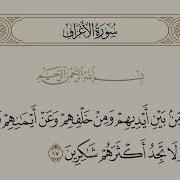 سُورَةُ الأَعْرَافِ
بِسْمِ اللَّهِ الرَّحْمَٰنِ الرَّحِيمِ
مِّنۢ بَيْنِ أَيْدِيهِمْ وَمِنْ خَلْفِهِمْ وَعَنْ أَيْمَٰنِهِمْ
لَا تَجِدُ أَكْثَرَهُمْ شَٰكِرِينَ ١٧